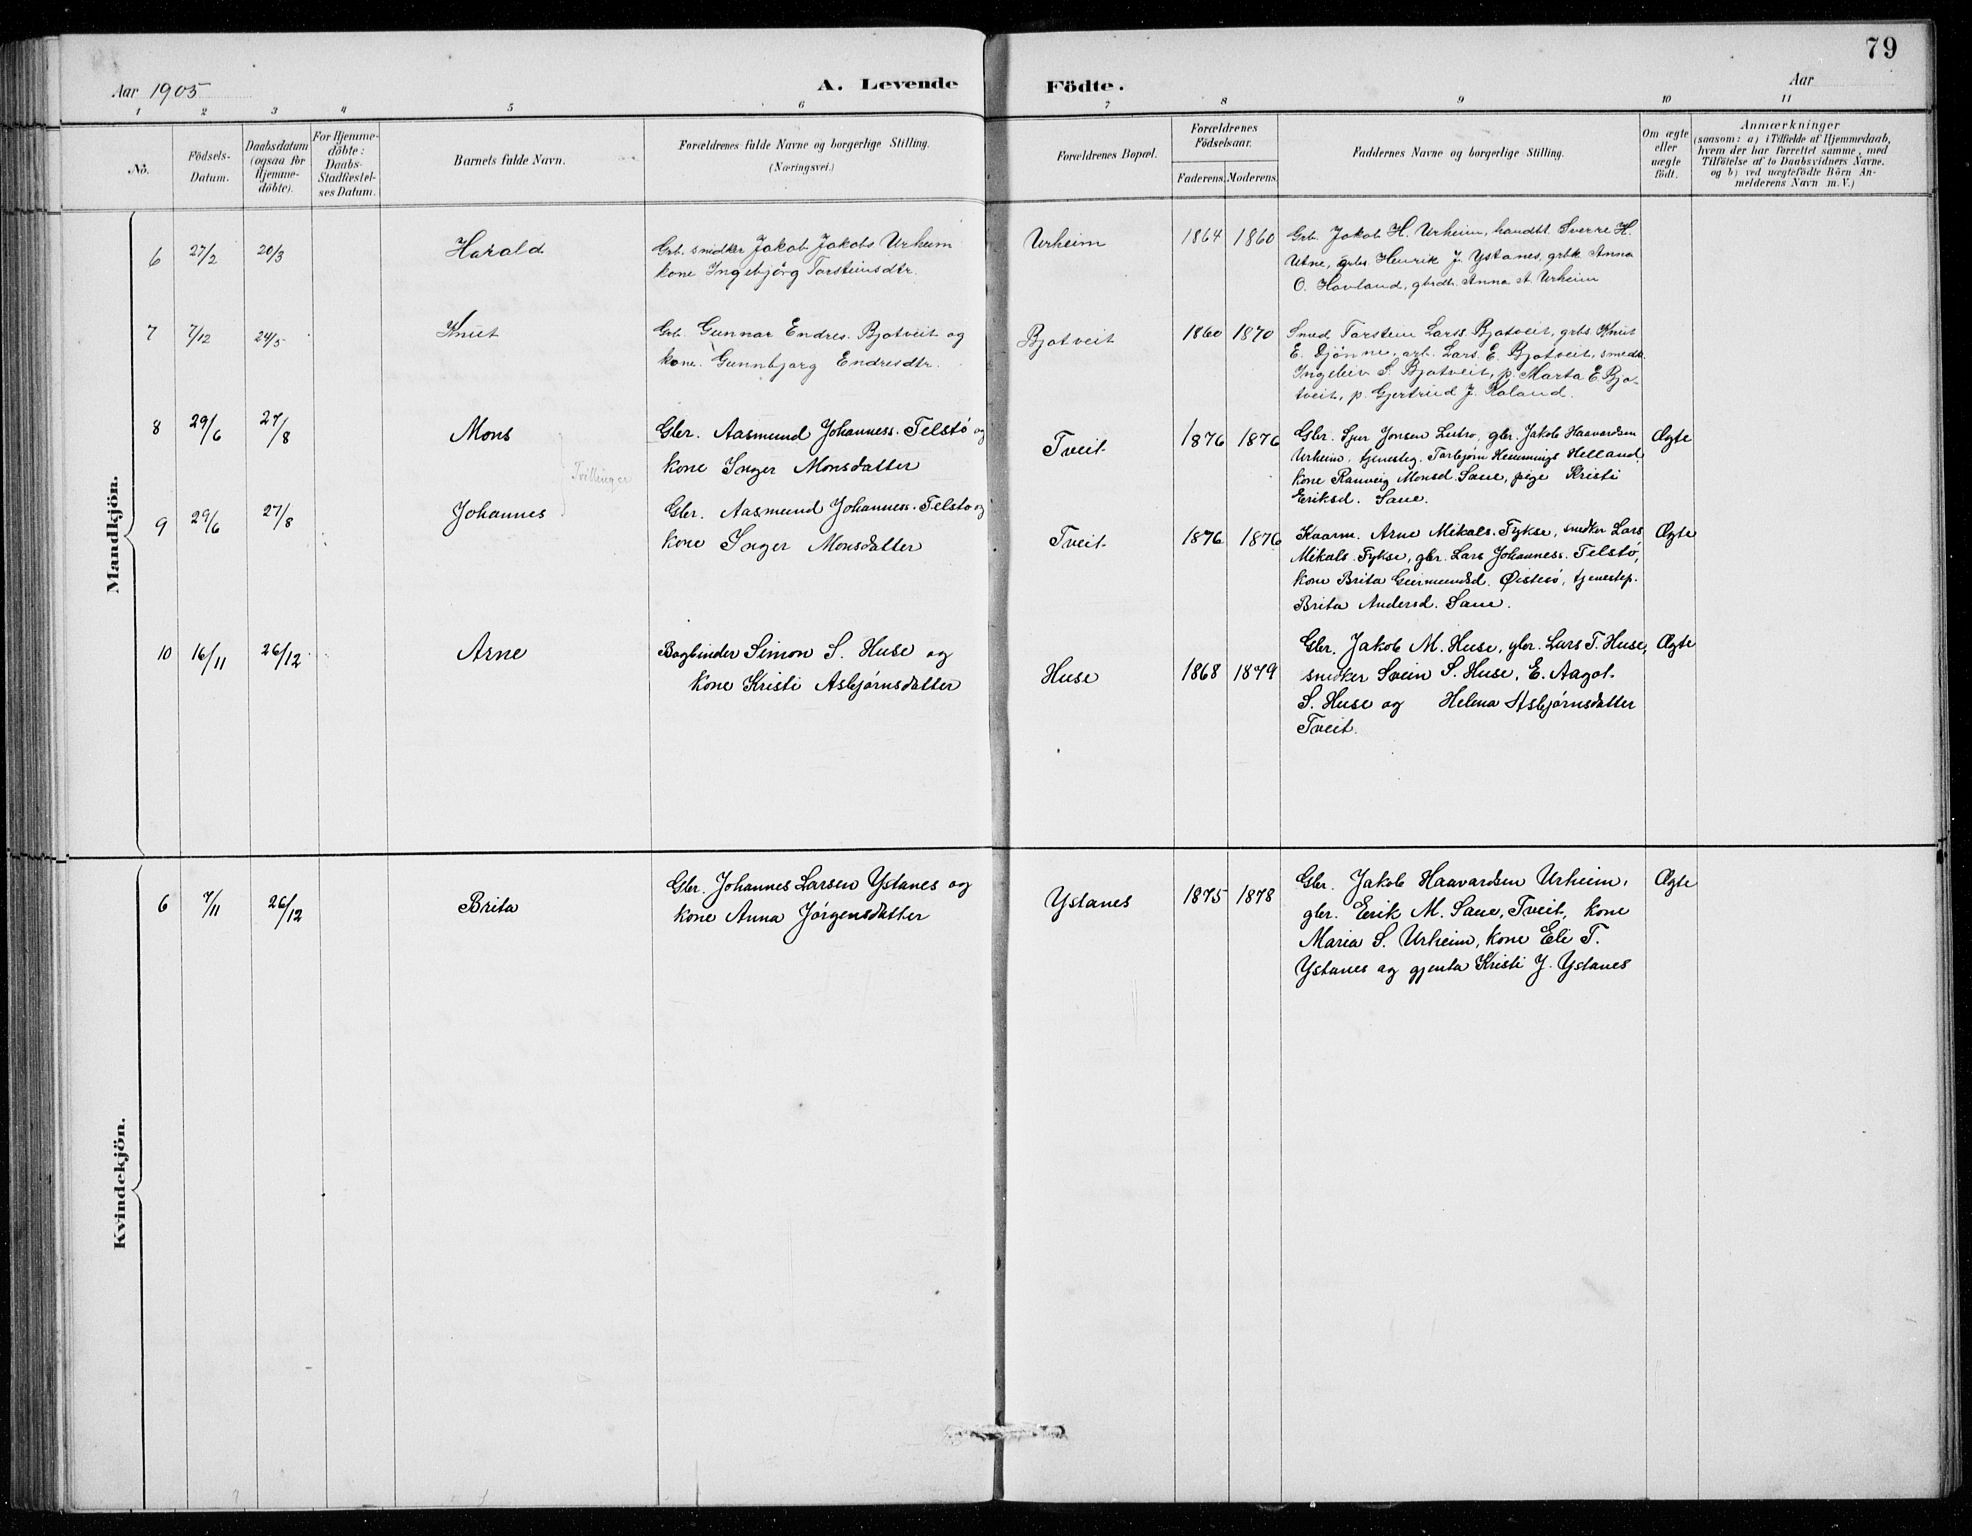 79
Aar 1905
A. Levende Födte.
Aar
1 2 3 4 5 6 7 8 9 10 11
No.
Födsels-
Datum.
Daabsdatum
(ogsaa for
Hjemme-
döbte).
For Hjemme-
döbte:
Daabs-
Stadfæstel-
ses Datum.
Barnets fulde Navn.
Forældrenes fulde Navne og borgerlige Stilling.
(Næringsvei.)
Forældrenes Bopæl.
Forældrenes
Födselsaar.
Faderens. Moderens.
Faddernes Navne og borgerlige Stilling.
Om ægte
eller
uægte
födt.
Anmærkninger
(saasom: a) i Tilfælde af Hjemmedaab,
hvem der har forrettet samme, med
Tilföielse af to Daabsvidners Navne,
og b) ved uægtefödte Börn An-
melderens Navn m. V.)
Mandkjön.
6 27/2 20/3 Harald
Grb. snedker Jakob Jakobs Urheim
kone Ingebjörg Torsteinsdtr.
Urheim 1864 1860
Grb. Jakob H. Urheim, handtl. Sverre H.
Utne, grbs. Henrik J. Ystanes, grbk. Anna
O. Hovland, gbrdt. Anna A. Urheim
7 7/12 24/5 Knut
Grb. Gunnar Endres. Bjotveit og
kone. Gunnbjorg Endresdtr.
Bjotveit 1860 1870
Smed Torstein Larss. Bjotveit, grbs. Knut
E. Djönne, arb. Lars E. Bjotveit, smedk.
Ingeleiv S. Bjotveit, p. Marta E. Bjo-
tveit, p. Gjertrud J. Roland.
8 29/6 27/8 Mons
Gbr. Aasmund Johanness. Telstø og
kone Inger Monsdatter
Tveit 1876 1876
Gbr. Sjur Jonsen Lutro, gbr. Jakob Haavardsen
Urheim, tjenesteg. Torbjørn Hemmings Helland,
kone Ranveig Monsd. Saue, pige Kristi
Eriksd. Saue.
Ægte
Tvillinger
9 29/6 27/8 Johannes
Gbr. Aasmund Johanness. Telstø og
kone Inger Monsdatter
Tveit 1876 1876
Kaarm. Arne Mikals. Fykse, snedker Lars
Mikals. Fykse, gbr. Lars Johanness. Telstø,
kone Brita Gurmundsd. Øistesø, tjenestep.
Brita Andersd. Saue.
Ægte
10 16/11 26/12 Arne
Bogbinder Simon S. Huse og
kone Kristi Asbjørnsdatter
Huse 1868 1879
Gbr. Jakob M. Huse, gbr. Lars T. Huse,
snedker Svein S. Huse, E. Aagot
S. Huse og Helma Asbjørnsdatter
Tveit.
Ægte
Kvindekjön.
6 7/11 26/12 Brita
Gbr. Johannes Larsen Ystanes og
kone Anna Jørgensdatter
Ystanes 1875 1878
Gbr. Jakob Haavardsen Urheim,
gbr. Eerik M. Saue, Tveit, kone
Maria S. Urheim, kone Eli T.
Ystanes og gjenta Kristi J. Ystanes
Ægte